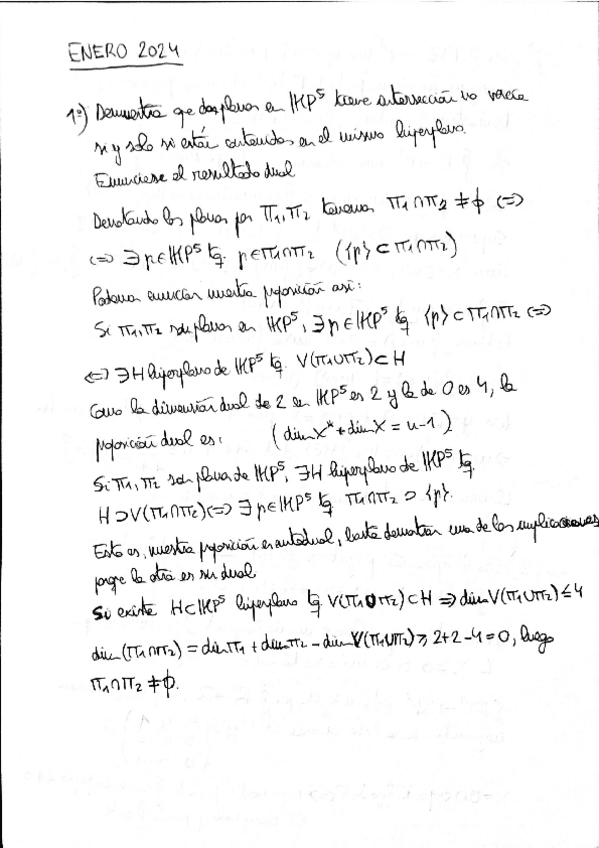 ENERO 2024
1º) Demuestra que dos planos en IKP⁵ tiene intersección no vacía
si y solo si están contenidos en el mismo hiperplano.
Enúnciese el resultado dual
Denotando los planos por π₁, π₂ tenemos π₁∩π₂ ≠ ϕ ⇔
⇔ ∃p∈IKP⁵ tq. p∈π₁∩π₂ ({p} ⊂ π₁∩π₂)
Podemos enunciar nuestra proposición así:
Si π₁, π₂ son planos en IKP⁵, ∃p∈IKP⁵ tq {p} ⊂ π₁∩π₂ ⇔
⇔ ∃H hiperplano de IKP⁵ tq. V(π₁∪π₂)⊂H
Como la dimensión dual de 2 en IKP⁵ es 2 y la de 0 es 4, la
proposición dual es: (dim X* + dim X = n-1)
Si π₁, π₂ son planos de IKP⁵, ∃H hiperplano de IKP⁵ tq.
H⊃V(π₁∩π₂) ⇔ ∃p∈IKP⁵ tq π₁∩π₂ ⊃ {p}.
Esto es, nuestra proposición es autodual, basta demostrar una de las implicaciones
porque la otra es su dual
Si existe H⊂IKP⁵ hiperplano tq V(π₁∪π₂)⊂H ⇒ dim V(π₁∪π₂) ≤ 4
dim (π₁∩π₂) = dim π₁ + dim π₂ - dim V(π₁∪π₂) ≥ 2+2-4=0, luego
π₁∩π₂ ≠ ϕ.